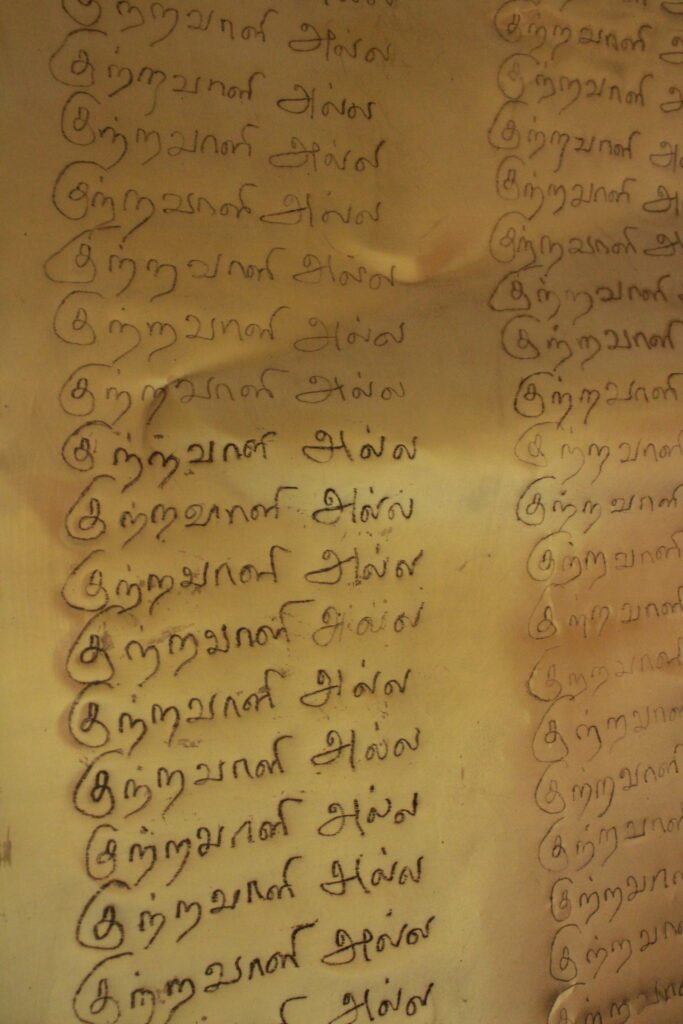 குற்றவாளி அல்ல
குற்றவாளி அல்ல
குற்றவாளி அல்ல
குற்றவாளி அல்ல
குற்றவாளி அல்ல
குற்றவாளி அல்ல
குற்றவாளி அல்ல
குற்றவாளி அல்ல
குற்றவாளி அல்ல
குற்றவாளி அல்ல
குற்றவாளி அல்ல
குற்றவாளி அல்ல
குற்றவாளி அல்ல
குற்றவாளி அல்ல
குற்றவாளி அல்ல
குற்றவாளி அல்ல
அல்ல
குற்றவாளி
குற்றவாளி
குற்றவாளி
குற்றவாளி
குற்றவாளி
குற்றவாளி
குற்றவாளி
குற்றவாளி
குற்றவாளி
குற்றவாளி
குற்றவாளி
குற்றவாளி
குற்றவாளி
குற்றவாளி
குற்றவாளி
குற்றவாளி